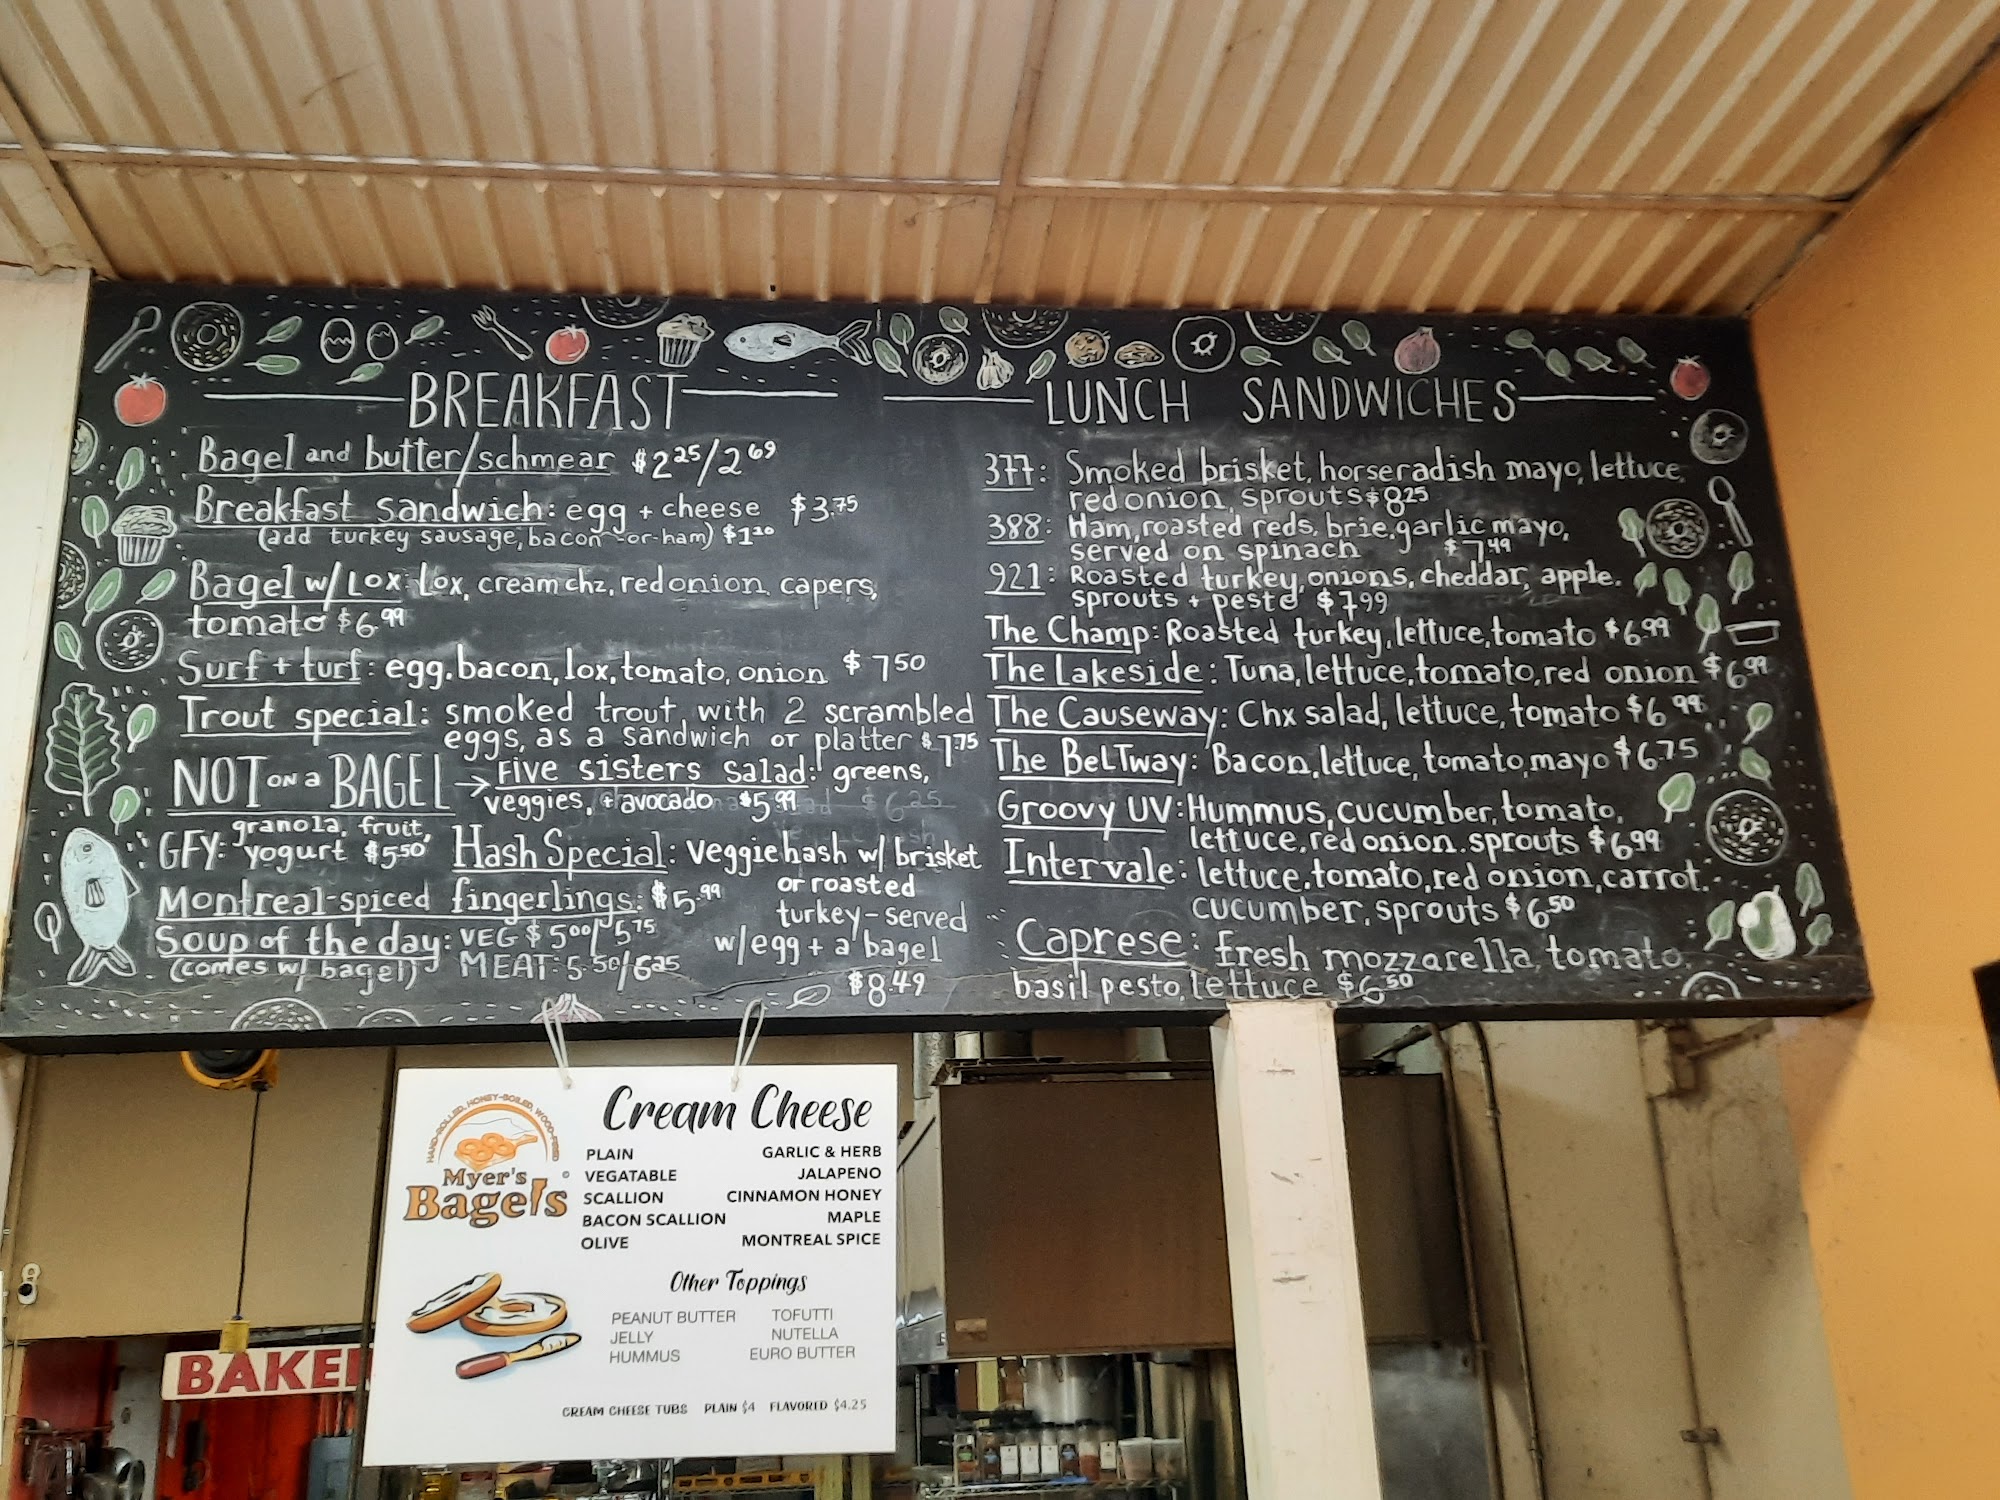 BREAKFAST
Bagel and butter/schmear $2.25/2.69
Breakfast sandwich: egg + cheese $3.75
(add turkey sausage, bacon -or- ham) $1.20
Bagel w/ Lox: Lox, cream chz, red onion, capers,
tomato $6.99
Surf + turf: egg, bacon, lox, tomato, onion $7.50
Trout special: smoked trout, with 2 scrambled
eggs, as a sandwich or platter $7.75
NOT ON a BAGEL → Five sisters salad: greens,
veggies, + avocado $5.99
GFY: granola, fruit,
yogurt $5.50
Hash Special: Veggie hash w/ brisket
or roasted
turkey - served
w/ egg + a bagel
$8.49
Montreal-spiced fingerlings: $5.99
Soup of the day: VEG $5.00/5.75
(comes w/ bagel) MEAT: 5.50/6.25
LUNCH SANDWICHES
377: Smoked brisket, horseradish mayo, lettuce,
red onion, sprouts $8.25
388: Ham, roasted reds, brie, garlic mayo,
served on spinach $7.49
921: Roasted turkey, onions, cheddar, apple,
sprouts + pesto $7.99
The Champ: Roasted turkey, lettuce, tomato $6.99
The Lakeside: Tuna, lettuce, tomato, red onion $6.99
The Causeway: Chx salad, lettuce, tomato $6.99
The BeLTway: Bacon, lettuce, tomato, mayo $6.75
Groovy UV: Hummus, cucumber, tomato,
lettuce, red onion, sprouts $6.99
Intervale: lettuce, tomato, red onion, carrot,
cucumber, sprouts $6.50
Caprese: fresh mozzarella, tomato,
basil pesto, lettuce $6.50
HAND-ROLLED, HONEY-BOILED, WOOD-FIRED
Myer's
Bagels
Cream Cheese
PLAIN GARLIC & HERB
VEGATABLE JALAPENO
SCALLION CINNAMON HONEY
BACON SCALLION MAPLE
OLIVE MONTREAL SPICE
Other Toppings
PEANUT BUTTER TOFUTTI
JELLY NUTELLA
HUMMUS EURO BUTTER
CREAM CHEESE TUBS PLAIN $4 FLAVORED $4.25
BAKE